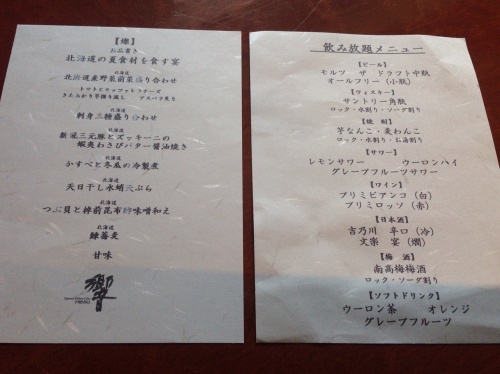 【燦】
お品書き
北海道の夏食材を食す宴
北海道
北海道産野菜前菜盛り合わせ
トマトとモッツァレラチーズ
きたあかり芋擦り流し アスパラ炙り
北海道
刺身三種盛り合わせ
新冠三元豚とズッキーニの
蝦夷わさびバター醤油焼き
北海道
かすべと冬瓜の冷製煮
北海道
天日干し水蛸天ぷら
北海道
つぶ貝と棹前昆布酢味噌和え
北海道
鰊蕎麦
甘味
響
飲み放題メニュー
【ビール】
モルツ ザ ドラフト中瓶
オールフリー(小瓶)
【ウィスキー】
サントリー角瓶
ロック・水割り・ソーダ割り
【焼酎】
芋なんこ・麦わんこ
ロック・水割り・お湯割り
【サワー】
レモンサワー ウーロンハイ
グレープフルーツサワー
【ワイン】
プリミビアンコ(白)
プリミロッソ(赤)
【日本酒】
吉乃川 辛口(冷)
文楽 宴(燗)
【梅酒】
南高梅梅酒
ロック・ソーダ割り
【ソフトドリンク】
ウーロン茶 オレンジ
グレープフルーツ